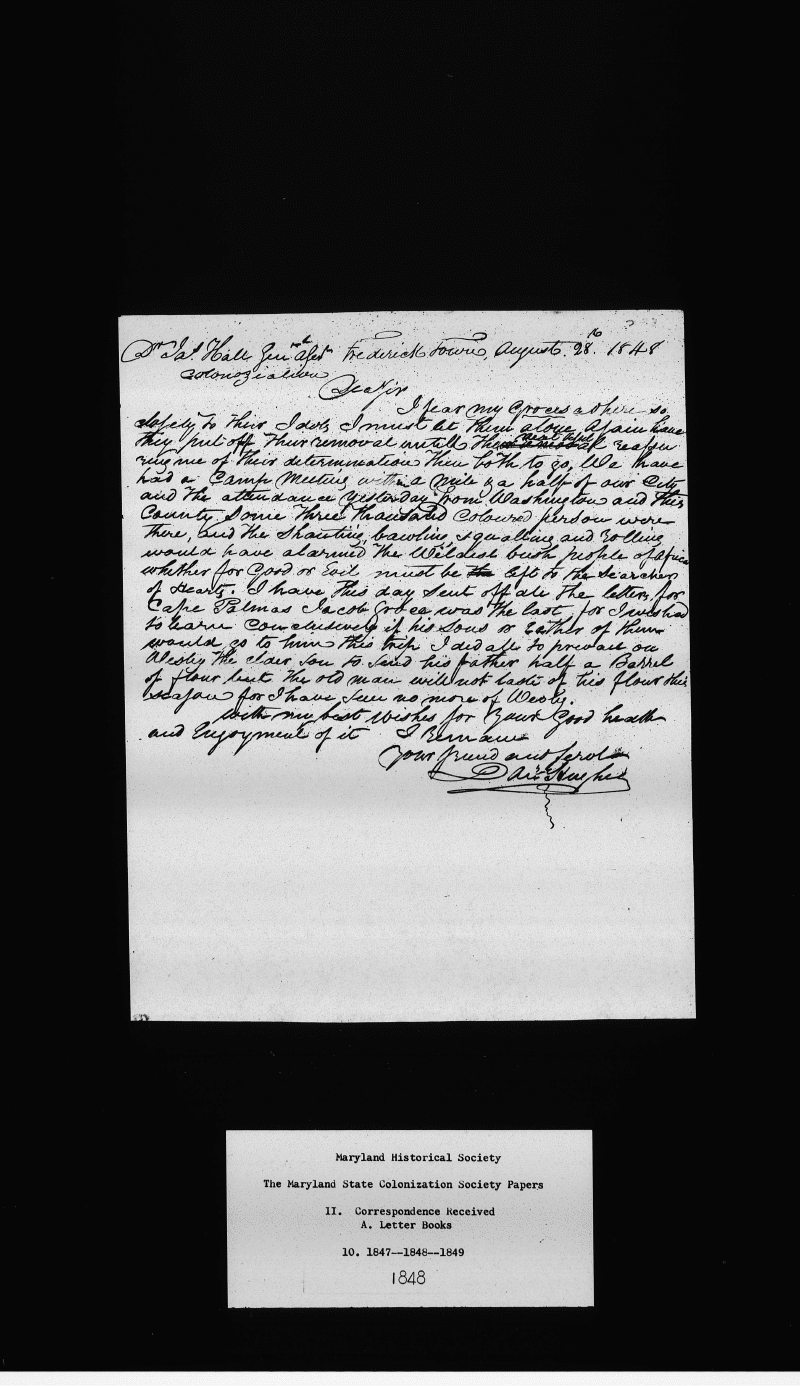 Dr Jas Hall Genl Agent Frederick Town, August. 28th. 1848
Colonoziation
Dea Sir
I fear my Groces adhere so
closely to their Idols I must let them alone, again have
they put off their removal untill next Assu
ring me of their determination then both to go, We have
had a Camp Meeting within a Mile & a half of our City
and the attendance yesterday from Washington and this
County. Some three thousand Coloured person were
there, and the Shouting, bawling, squalling, and Rolling
would have alarmed the Wildest bush people of Africa
whether for Good or Evil must be the left to the Searcher
of Hearts. I have this day Sent off all the letters, for
Cape Palmas Jacob Groce was the last, for I wished
to learn Conclusively if his Sons or Eather of them
would go to him this trip I did all to prevail on
Wesley the elder Son to Send his father half a Barrel
of flour but the old man will not taste of his flour this
season for I have seen no more of Wesly.
with my best Wishes for Your Good health
and Enjoyment of it I Remain
Your friend and Servt
Dan Hughes
Maryland Historical Society
The Maryland State Colonization Society Papers
II. Correspondence Received
A. Letter Books
10. 1847--1848--1849
1848